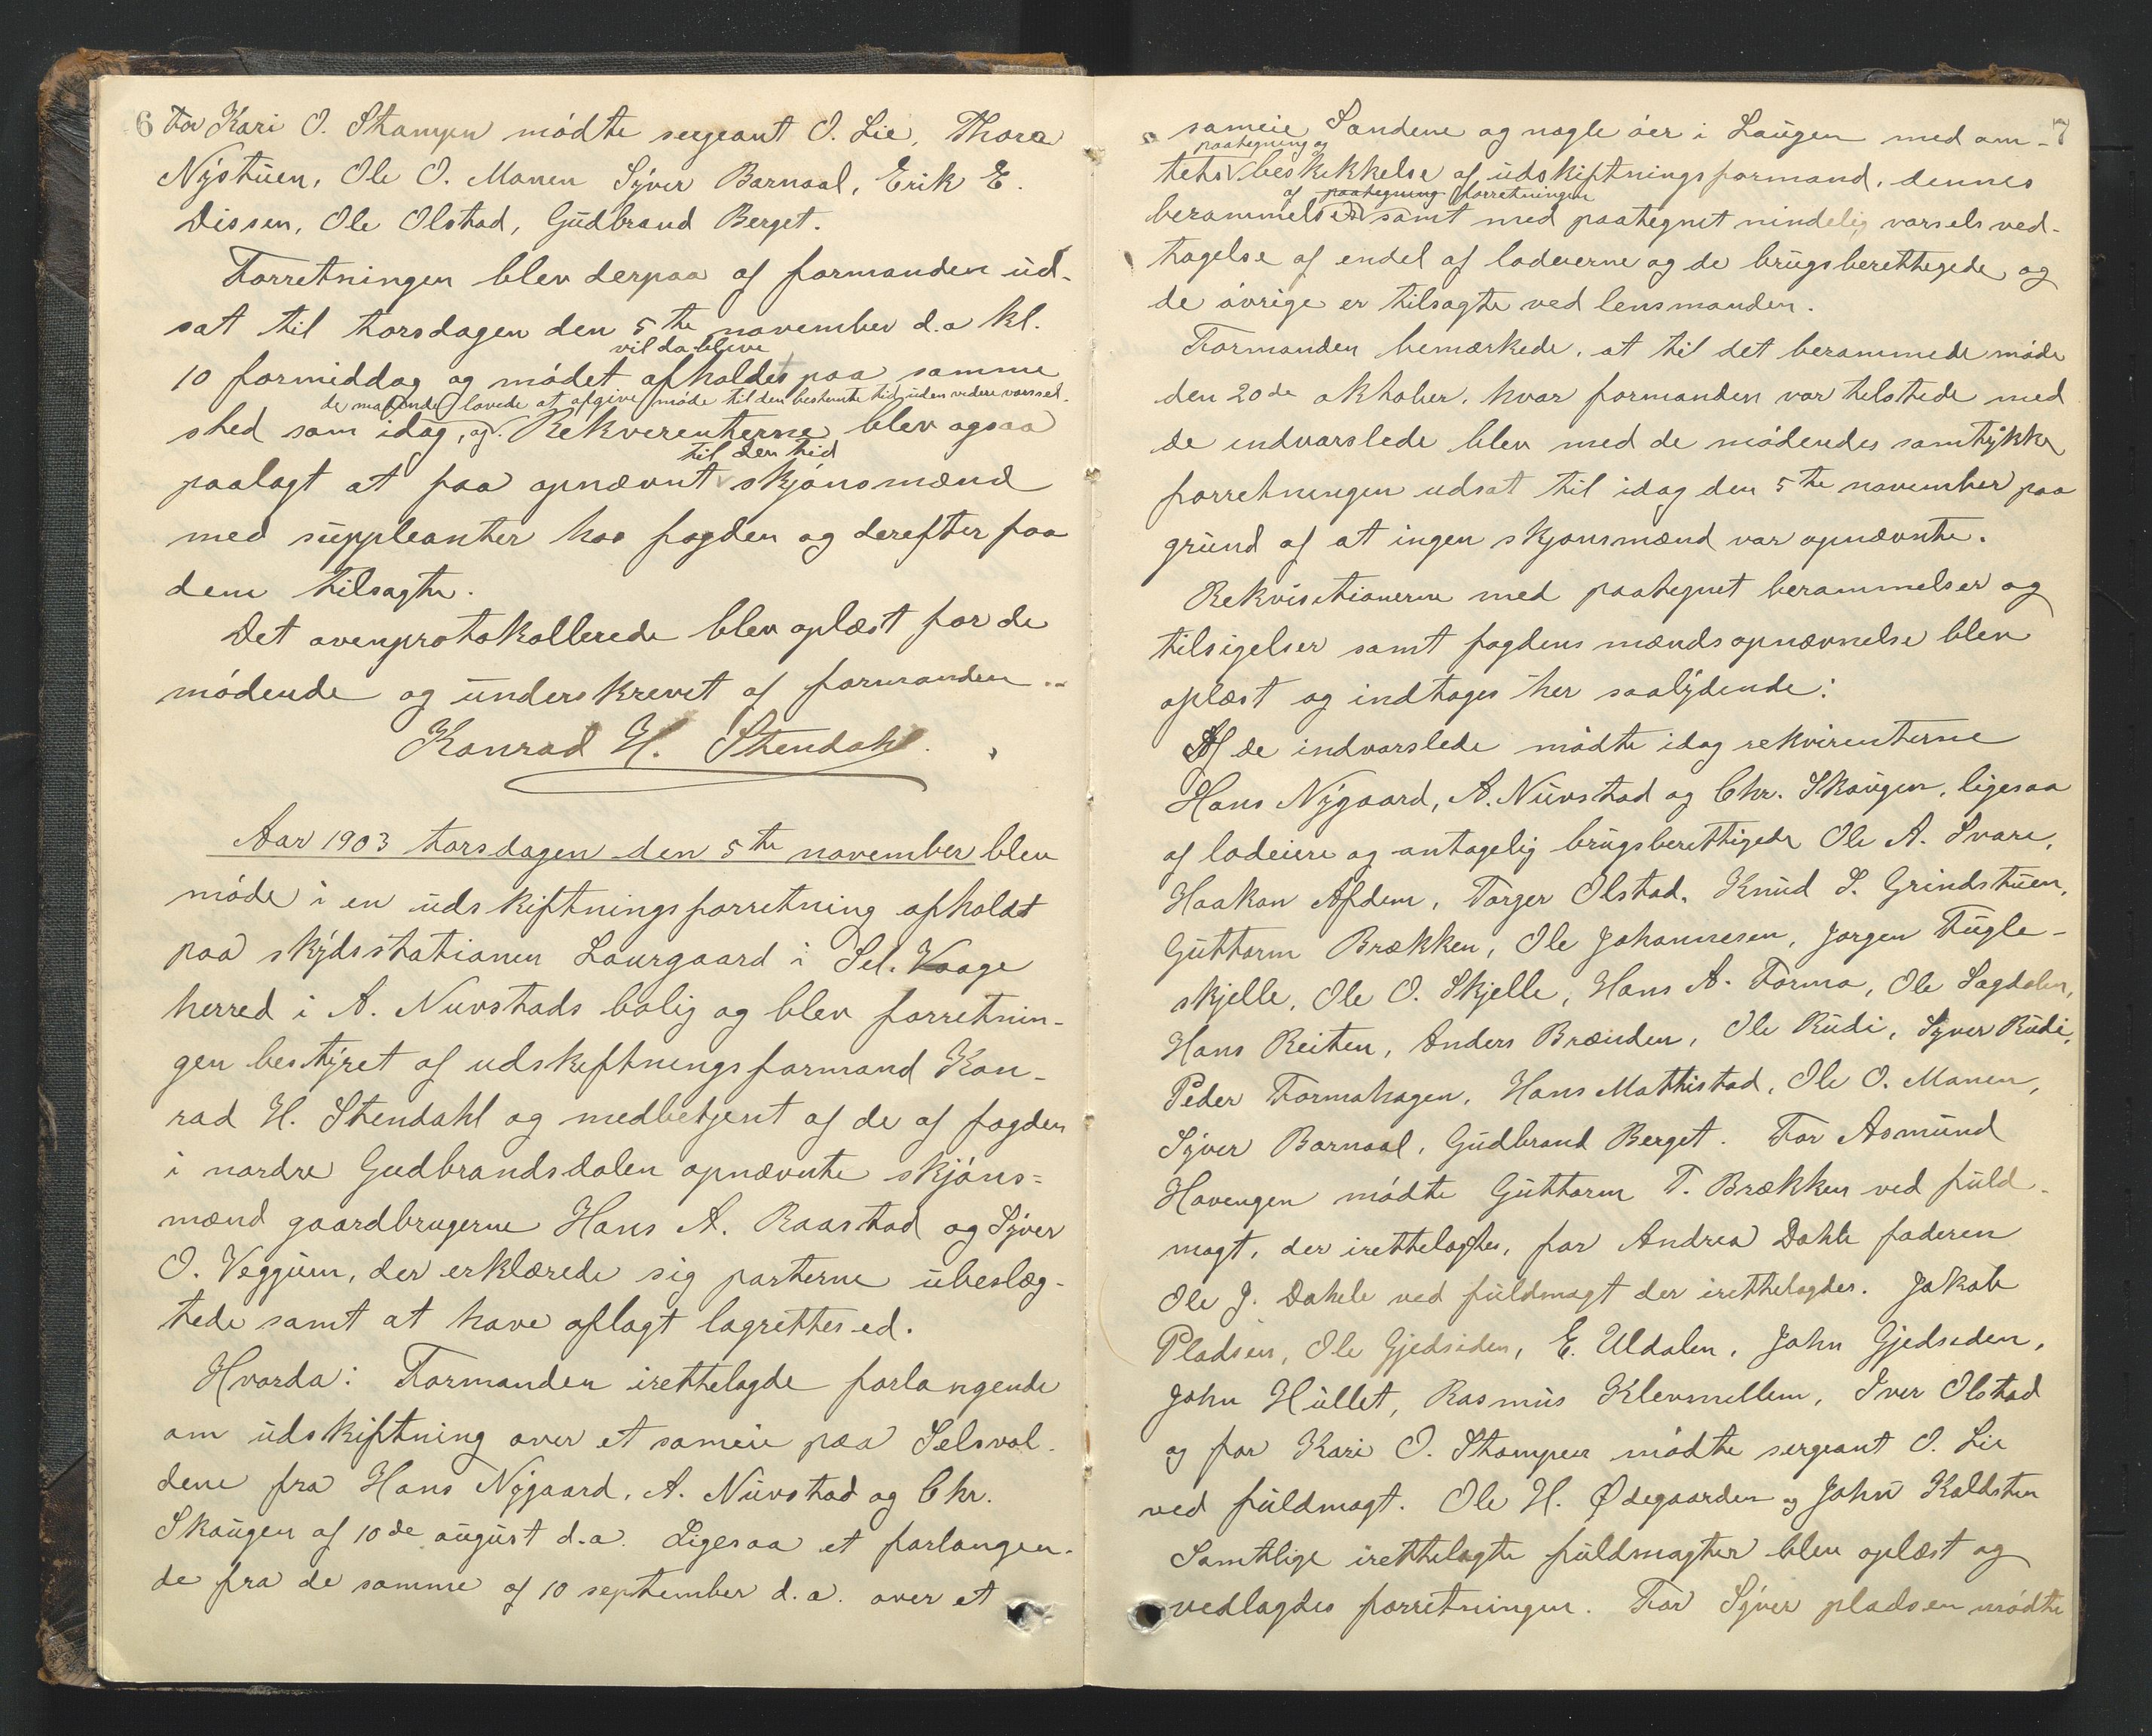 6 For Kari O. Stampen mødte sergeant O. Lie, Thora
Nystuen, Ole O. Manen Syver Barnaal, Erik E.
Dissen, Ole Olstad, Gudbrand Berget.
Forretningen blev derpaa af formanden ud-
sat til torsdagen den 5te november d.a kl.
vil da blive
10 formiddag og mødet afholdes paa samme
de mødende lovede at afgive møde til den bestemte tid uden videre varssel.
sted som idag, og Rekvirenterne blev ogsaa
til den tid
paalagt at faa opnævnt skjønsmænd
med suppleanter hos fogden og derefter faa
dem tilsagte.
Det ovenprotokollerede blev oplæst for de
mødende og underskrevet af formanden..
Konrad H. Stendahl.
Aar 1903 torsdagen den 5te november blev
møde i en udskiftningsforretning afholdt
paa skydsstationen Laurgaard i Sel. Vaage
herred i A. Nuvstads bolig og blev forretnin-
gen bestyret af udskiftningsformand Kon-
rad H. Stendahl og medbetjent af de af fogden
i nordre Gudbrandsdalen opnævnte skjøns=
mænd gaardbrugerne Hans A. Raastad og Syver
O. Veggum, der erklærede sig parterne ubeslæg-
tede samt at have aflagt lagrettesed.
Hvorda: Formanden irettelagde forlangende
om udskiftning over et sameie paa Selsvol-
dene fra Hans Nygaard, A. Nuvstad og Chr.
Skaugen af 10de august d.a. Ligesaa et forlangen-
de fra de samme af 10 september d.a. over et
sameie Sandene og nogle øer i Laugen med am- 7
paategning og
tets beskikkelse af udskiftningsformand, dennes
af paategning forretningen
berammelser samt med paategnet mindelig varsels ved-
tagelse af endel af lodeierne og de brugsberettigede og
de øvrige er tilsagte ved lensmanden.
Formanden bemærkede, at til det berammede møde
den 20de oktober, hvor formanden var tilstede med
de indvarslede blev med de mødendes samtykke
forretningen udsat til idag den 5te november paa
grund af at ingen skjønsmænd var opnævnte.
Rekvisitionerne med paategnet berammelser og
tilsigelser samt fogdens mændsopnævnelse blev
oplæst og indtages her saalydende:
Af de indvarslede mødte idag rekvirenterne
Hans Nygaard, A. Nuvstad og Chr. Skaugen, ligesaa
af lodeiere og antagelig brugsberettigede Ole A. Svare,
Haakon Afdem, Torger Olstad, Knud S. Grindstuen,
Guttorm Brækken, Ole Johannesen, Jørgen Fugle-
skjelle, Ole O. Skjelle, Hans A. Formo, Ole Sagdalen,
Hans Reiten, Anders Brænden, Ole Rudi, Syver Rudi,
Peder Formohagen, Hans Mathistad, Ole O. Manen,
Syver Barnaal, Gudbrand Berget. For Asmund
Havengen mødte Guttorm T. Brækken ved fuld-
magt, der irettelagdes, for Andrea Dahle faderen
Ole J. Dahle ved fuldmagt der irettelagdes. Jakob
Pladsen, Ole Gjedsiden, E. Uldalen, John Gjedsiden,
John Hullet, Rasmus Klevmellem, Iver Olstad
og for Kari O. Stampen mødte sergeant O. Lie
ved fuldmagt. Ole H. Ødegaarden og John Koldsten
Samtlige irettelagte fuldmagter blev oplæst og
vedlagdes forretningen. For Syver pladsen mødte